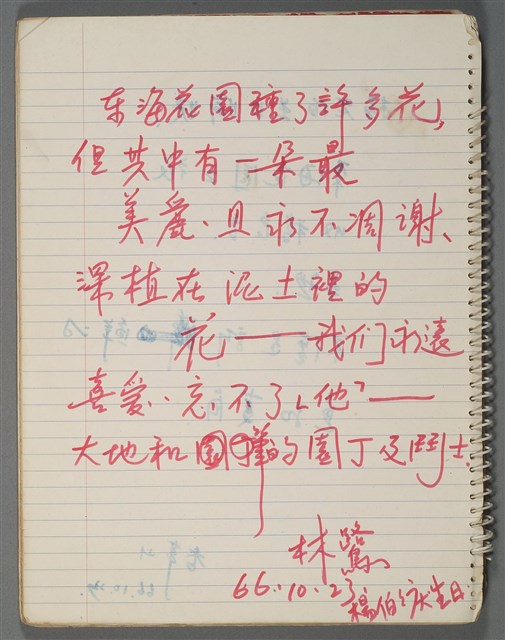 东海花園種了許多花,
但其中有一朵最
美麗、且永不凋謝、
深植在泥土裡的
花——我们永遠
喜愛、忘不了「他」——
大地和的園丁及鬥士.
林鷺
66.10.23
楊伯伯慶生日